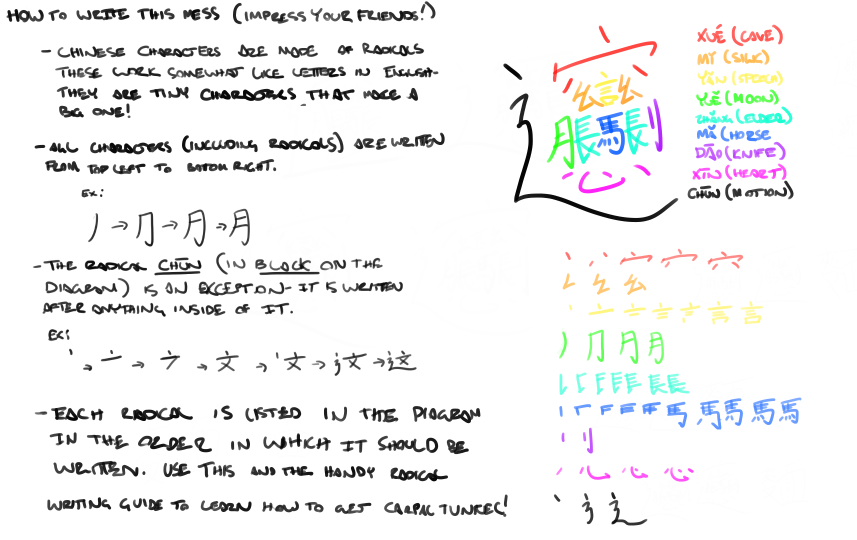 HOW TO WRITE THIS MESS (IMPRESS YOUR FRIENDS!)
- CHINESE CHARACTERS ARE MADE OF RADICALS
THESE WORK SOMEWHAT LIKE LETTERS IN ENGLISH-
THEY ARE TINY CHARACTERS THAT MAKE A
BIG ONE!
- ALL CHARACTERS (INCLUDING RADICALS) ARE WRITTEN
FROM TOP LEFT TO BOTTOM RIGHT.
EX:
丿 → 冂 → 月 → 月
- THE RADICAL CHŪN (IN BLACK ON THE
DIAGRAM) IS AN EXCEPTION- IT IS WRITTEN
AFTER ANYTHING INSIDE OF IT.
EX:
丶 → 亠 → ナ → 文 → 文 → 文 → 这
- EACH RADICAL IS LISTED IN THE DIAGRAM
IN THE ORDER IN WHICH IT SHOULD BE
WRITTEN. USE THIS AND THE HANDY RADICAL
WRITING GUIDE TO LEARN HOW TO GET CARPAL TUNNEL!
穴
幺言幺
月長馬長刂
心
XUÉ (CAVE)
MÌ (SILK)
YÁN (SPEECH)
YUÈ (MOON)
ZHǍNG (ELDER)
MǍ (HORSE
DĀO (KNIFE)
XĪN (HEART)
CHŪN (MOTION)
穴
幺
言
月
長
馬
刂
心
辶